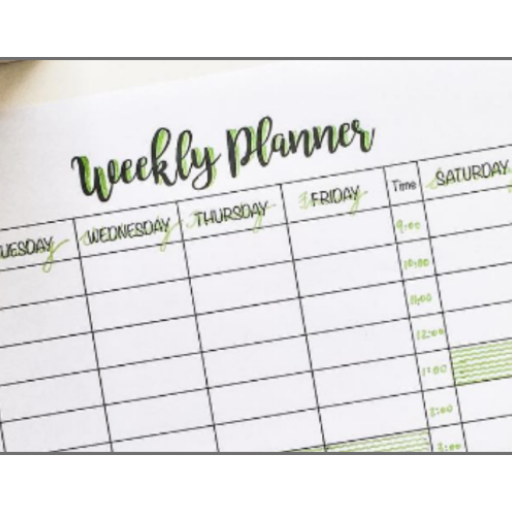 Weekly Planner
UESDAY WEDNESDAY THURSDAY FRIDAY Time SATURDAY
9:00
10:00
11:00
12:00
1:00
2:00
3:00